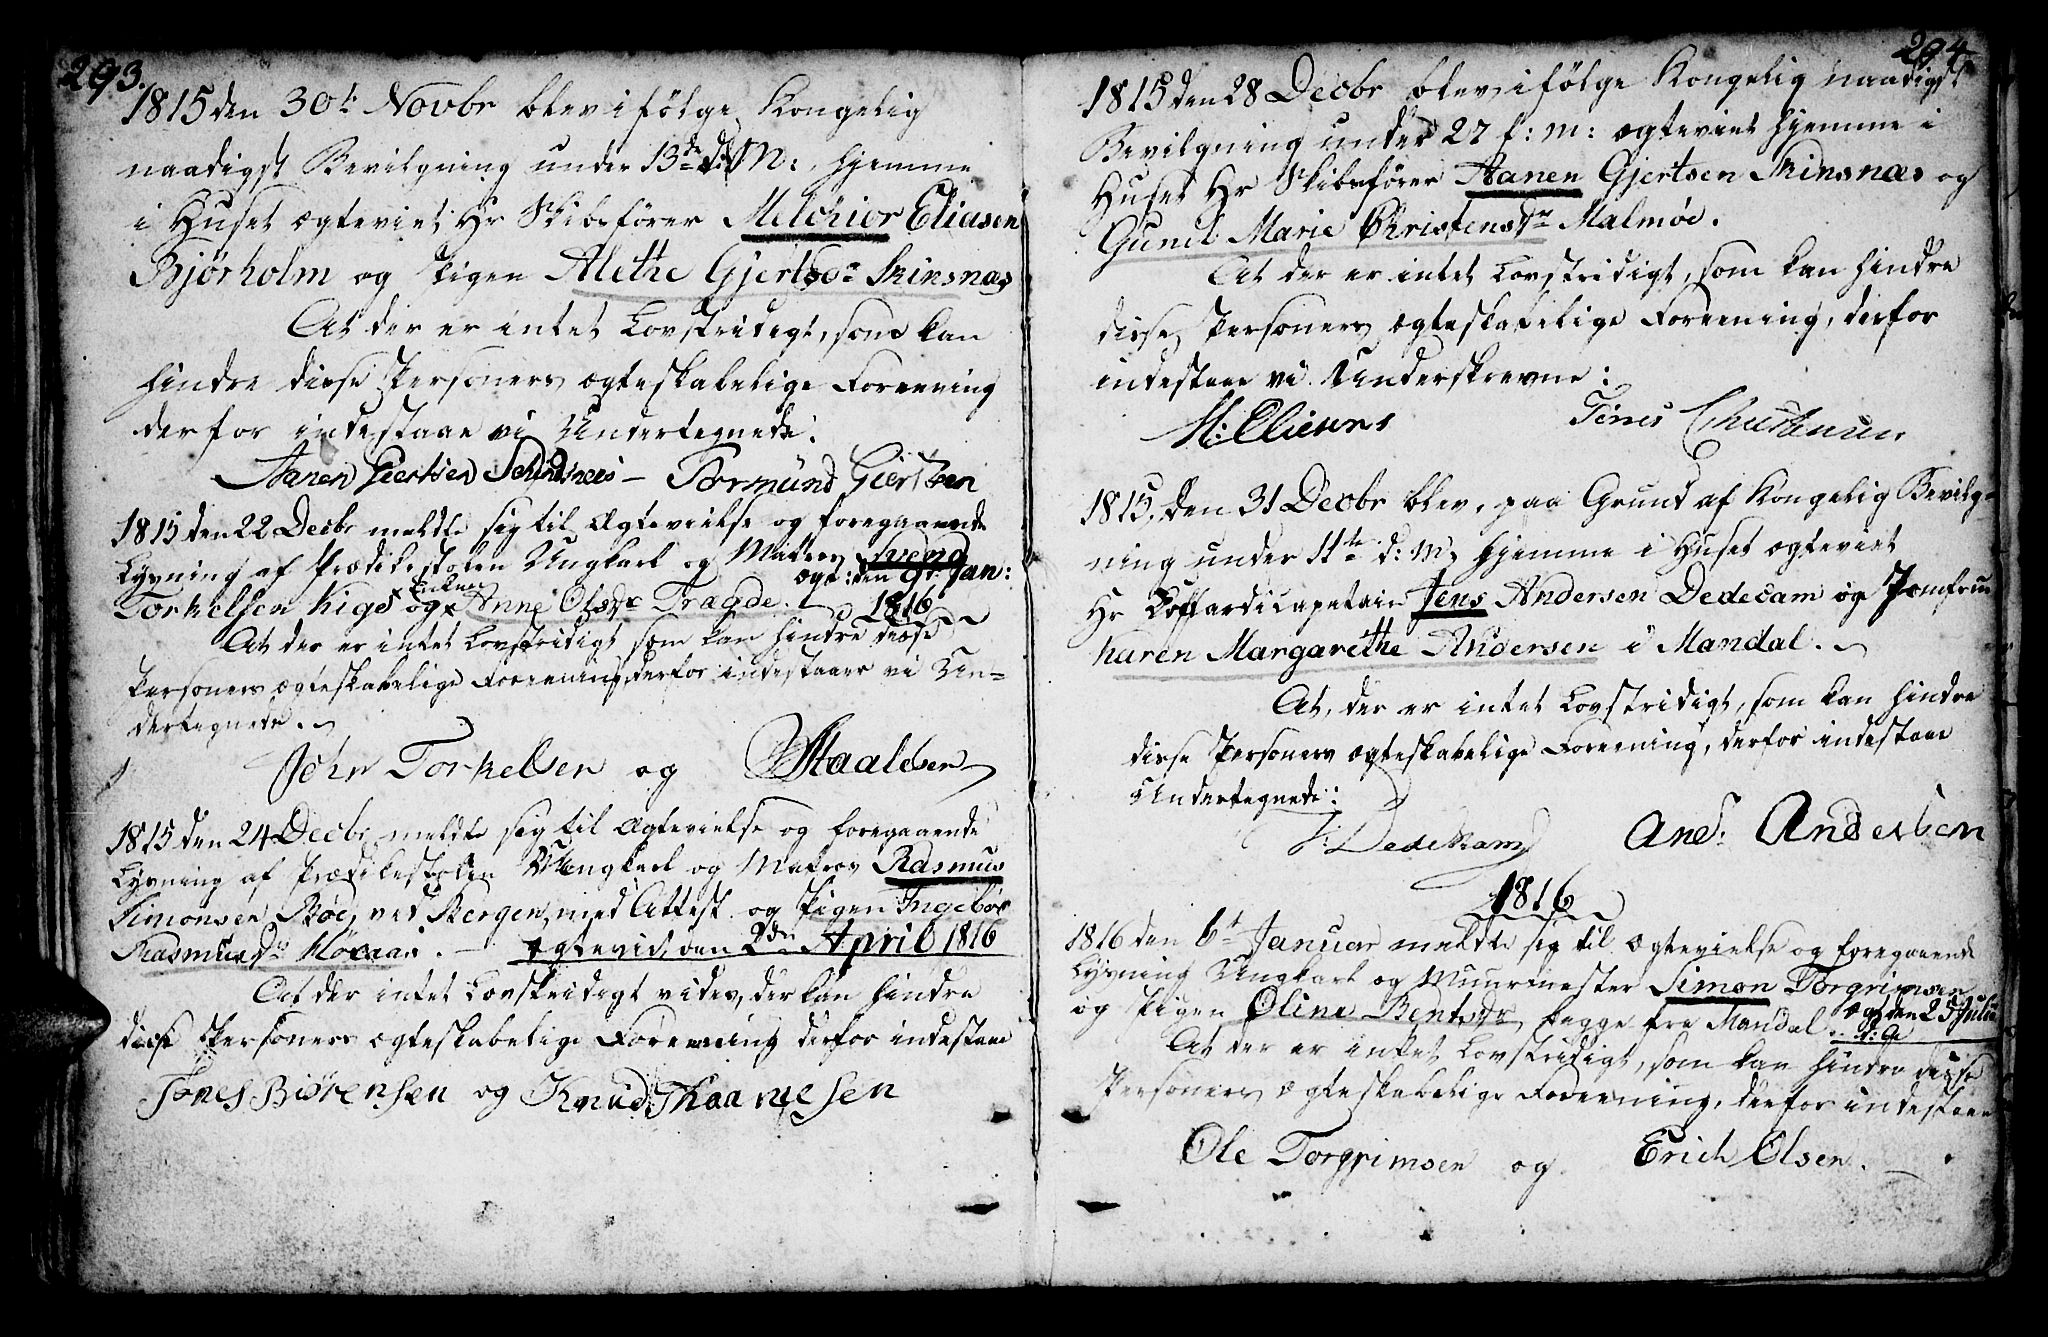 293.
1815 den 30t Novbr blev ifölge Kongelig
naadigst Bevilgning under 13de d: M:, hjemme
i Huset ægteviet Hr Skibsfører Melchior Eliasen
Bjørholm og Pigen Alethe Gjertsdr Skinsnæs
At der er intet Lovstridigt, som kan
hindre disse Personers ægteskabelige Foreening
derfor indestaae vi Undertegnede.
Aanen Giertsen Schindsnees – Tormund Giertsen
1815 den 22 Decbr meldte sig til Ægtevielse og foregaaende
Lysning af Prædikestolen Ungkarl og Matros Svend
ægt: den 9t Jan:
Enken
Torkelsen Kige og Anne Olsdr Trægde. 1816
At der er intet Lovstridigt som kan hindre disse
Personers ægteskabelige Foreening, derfor indestaaer vi Un=
dertegnede.
John Torkelsen og Staalesen
1815 den 24 Decbr meldte sig til Ægtevielse og foregaaende
Lysning af Prædikestolen Ungkarl og Matros Rasmus
Simonsen Böe, ved Bergen, med Attest og Pigen Ingebor
Rasmusdr . – Ægteviet den 2den April 1816
At der intet Lovstridigt vides, der kan hindre
disse Personers ægteskabelige Foreening derfor indestaae
Jones Biörensen og Knud Thaamesen
294
1815 den 28 Decbr blev ifölge Kongelig naadigst
Bevilgning under 27 f: M: ægteviet hjemme i
Huset Hr Skibsfører Aanen Gjertsen Skinsnæs og
Gunil Marie Christensdr Malmöe.
At der er intet Lovstridigt, som kan hindre
disse Personers ægteskabelige Foreening, derfor
indestaae vi Underskrevne:
M: Eliesens Tönes Christensen
1815, den 31 Decbr blev, paa Grund af Kongelig Bevilg=
ning under 11te d: M, hjemme i Huset ægteviet
Hr Coffardicapitain Jens Andersen Dedecam og Jomfrue
Karen Margarethe Andersen i Mandal.
At, der er intet Lovstridigt, som kan hindre
disse Personers ægteskabelige Foreening, derfor indestaae
Undertegnede:
Dedekam And: Andersen
1816
1816 den 6t Januar meldte sig til ægtevielse og foregaaende
Lysning Ungkarl og Muurmester Simon Torgrimsen
og Pigen Oline Bentsdr begge fra Mandal. Ægt den 25 Julii
d: A
At der er intet Lovstridigt, som kan hindre disse
Personers ægteskabelige Foreening, derfor indestaae
Ole Torgrimsen og Erich Olsen.